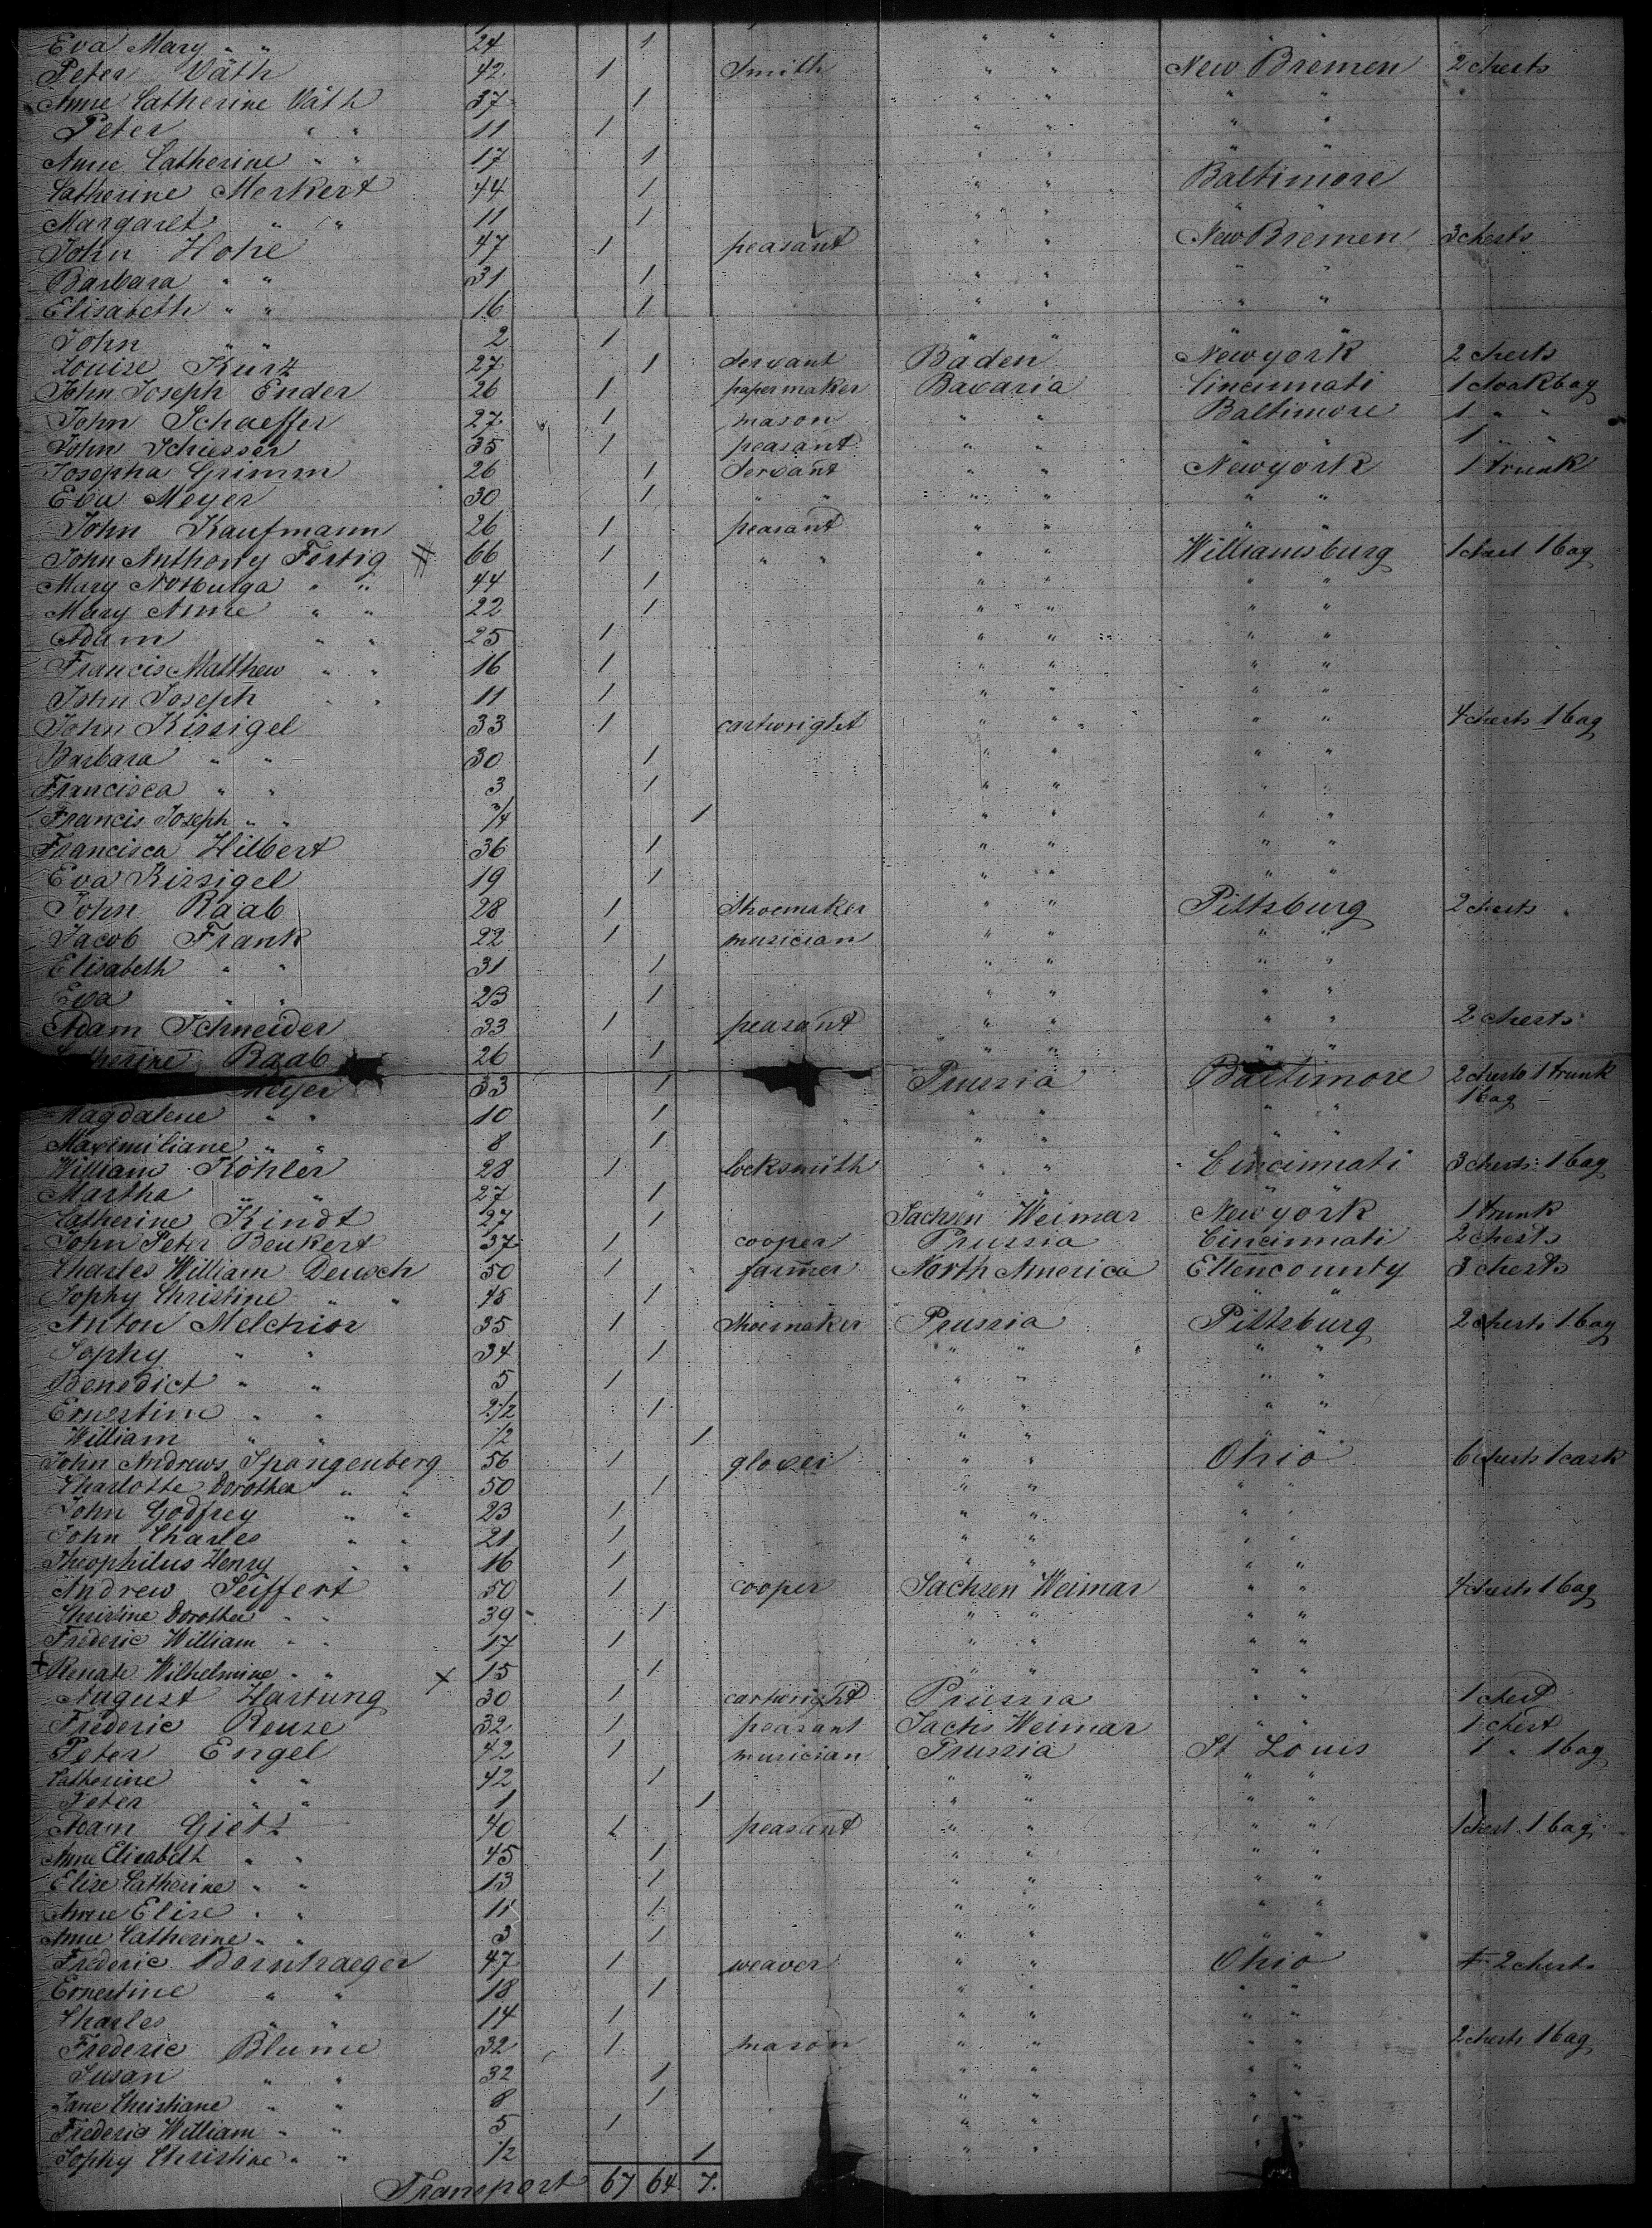 Eva Mary " " 24 1 " "
Peter Väth 42 1 Smith " " New Bremen 2 chests
Anne Catherine Väth 37 1 " " " "
Peter " " 11 1 " " " "
Anne Catherine " " 17 1 " " " "
Catherine Merkert 44 1 " " Baltimore
Margaret " " 11 1 " " " "
John Hohe 47 1 peasant " " New Bremen 3 chests
Barbara " " 31 1 " " " "
Elisabeth " " 16 1 " " " "
John " " 2 1 " " " "
Louise Kurz 27 1 Servant Baden New york 2 chests
John Joseph Ender 26 1 papermaker Bavaria Cincinnati 1 cloakbag
John Schaeffer 27 1 mason " " Baltimore 1 " "
John Schiesser 35 1 peasant " " " " 1 " "
Josepha Grimm 26 1 Servant " " New york 1 trunk
Eva Meyer 30 1 " " " " " "
John Kaufmann 26 1 peasant " " " "
John Anthony Fertig # 66 1 " " " " Williamsburg 1 chest 1 bag
Mary Notburga " " 44 1 " " " "
Mary Anne " " 22 1 " " " "
Adam " " 25 1 " " " "
Francis Matthew " " 16 1 " " " "
John Joseph " " 11 1 " " " "
John Kissigel 33 1 cartwright " " " " 4 chests 1 bag
Barbara " " 30 1 " " " "
Francisca " " 3 1 " " " "
Francis Joseph " " 3/4 1 " " " "
Francisca Hilbert 36 1 " " " "
Eva Kissigel 19 1 " " " "
John Raab 28 1 Shoemaker " " Pittsburg 2 chests
Jacob Frank 22 1 musician " " " "
Elisabeth " " 31 1 " " " "
Eva " " 23 1 " " " "
Adam Schneider 33 1 peasant " " " " 2 chests
Catherine Raab 26 1 " " " "
Meyer 33 1 Prussia Baltimore 2 chests 1 trunk
1 bag
Magdalene " " 10 1 " " " "
Maximiliane " " 8 1 " " " "
William Köhler 28 1 locksmith " " Cincinnati 3 chests 1 bag
Martha " " 27 1 " " " "
Catherine Kindt 27 1 Sachsen Weimar New york 1 trunk
John Peter Beukert 37 1 cooper Prussia Cincinnati 2 chests
Charles William Deusch 50 1 farmer North America Ettencounty 3 chests
Sophy Christine " " 48 1 " "
Anton Melchior 35 1 Shoemaker Prussia Pittsburg 2 chests 1 bag
Sophy " " 34 1 " " " "
Benedict " " 5 1 " " " "
Ernestine " " 2 1/2 1 " " " "
William " " 1/2 1 " " " "
John Andrews Spangenberg 56 1 glover " " Ohio 6 chests 1 cask
Charlotte Dorothea " " 50 1 " " " "
John Godfrey " " 23 1 " " " "
John Charles " " 21 1 " " " "
Theophilus Henry " " 16 1 " " " "
Andrew Seiffert 50 1 cooper Sachsen Weimar " " 4 chests 1 bag
Christine Dorothea " " 39 1 " " " "
Frederic William " " 17 1 " " " "
+ Renate Wilhelmine " " x 15 1 " " " "
August Hartung 30 1 cartwright Prussia " " 1 chest
Frederic Reuse 32 1 peasant Sachs Weimar " " 1 chest
Peter Engel 42 1 musician Prussia St Louis 1 " 1 bag
Catherine " " 42 1 " " " "
Peter " " 1 1 " " " "
Adam Gietz 40 1 peasant " " " " 1 chest 1 bag
Anne Elisabeth " " 45 1 " " " "
Elise Catherine " " 13 1 " " " "
Anne Elise " " 11 1 " " " "
Anne Catherine " " 3 1 " " " "
Frederic Bornhaeger 47 1 weaver " " Ohio 2 chests
Ernestine " " 18 1 " " " "
Charles " " 14 1 " " " "
Frederic Blume 32 1 mason " " " " 2 chests 1 bag
Susan " " 32 1 " " " "
Jane Christiane " " 8 1 " " " "
Frederic William " " 5 1 " " " "
Sophy Christine " " 1/2 1 " " " "
Transport 67 64 7.